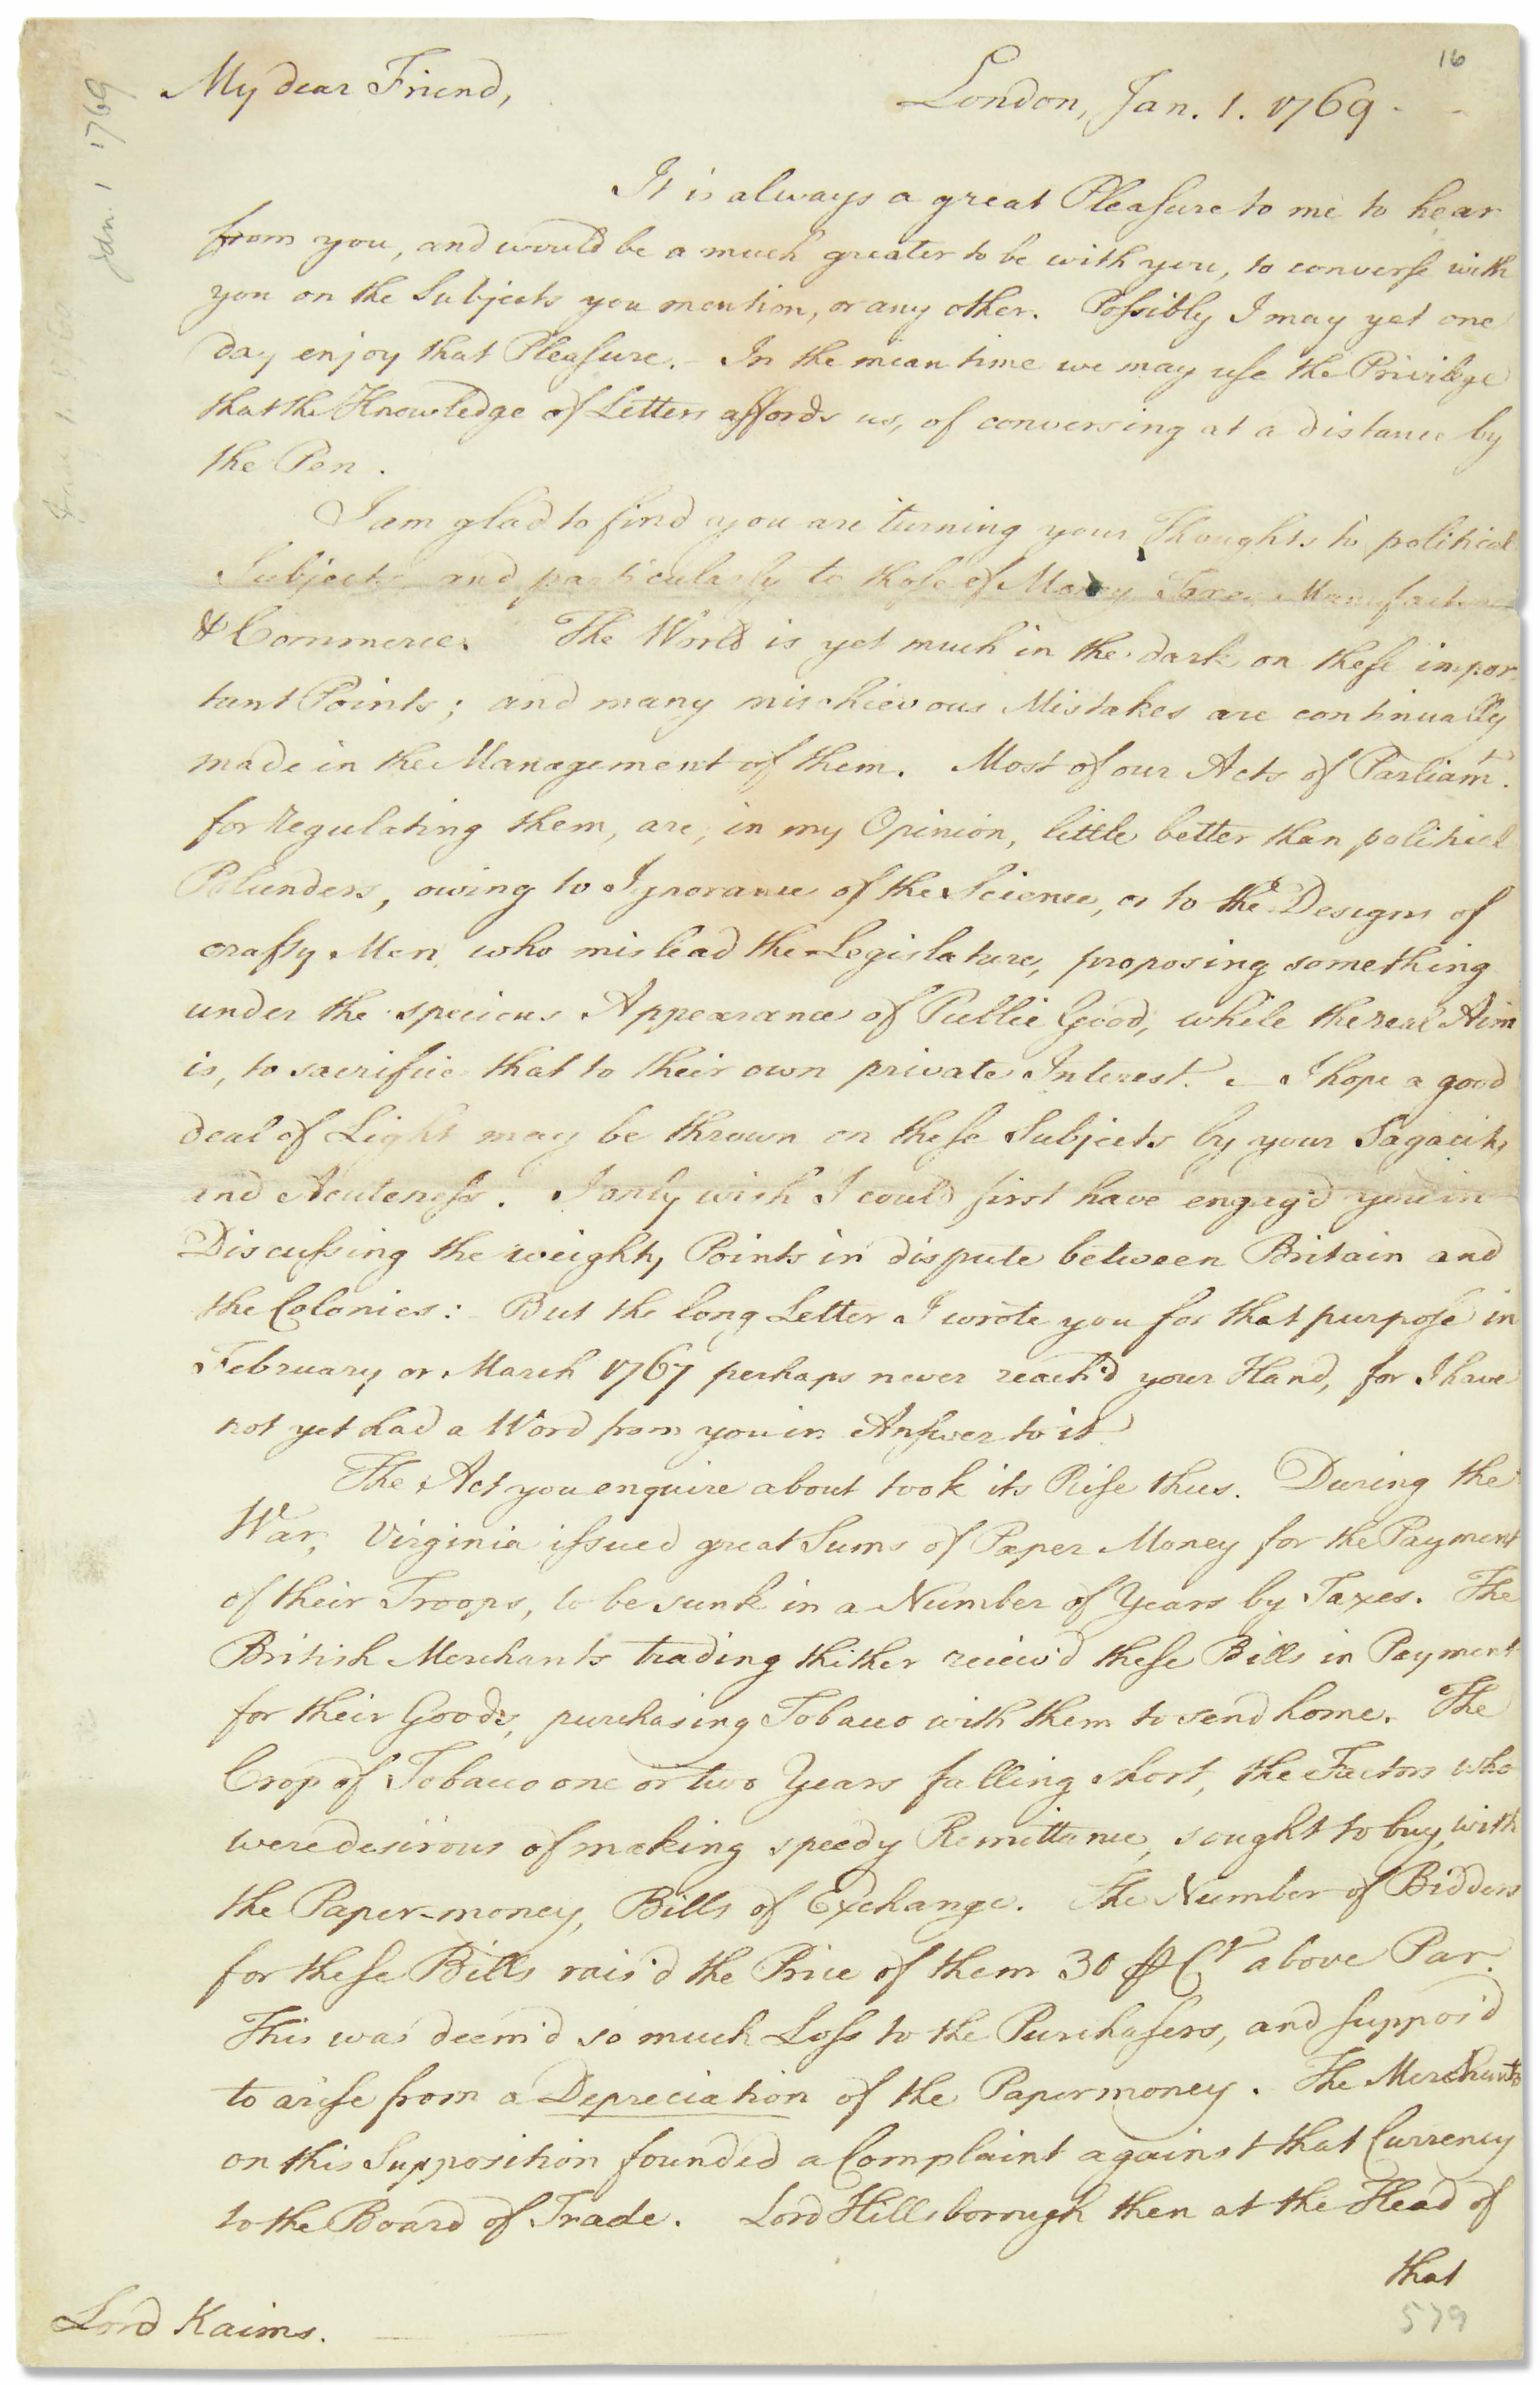 16
My dear Friend,
London, Jan. 1. 1769.
Jan. 1 1769
It is always a great Pleasure to me to hear
from you, and would be a much greater to be with you, to converse with
you on the Subjects you mention, or any other. Possibly I may yet one
day enjoy that Pleasure. — In the mean time we may use the Privilege
that the Knowledge of Letters affords us, of conversing at a distance by
the Pen.
I am glad to find you are turning your Thoughts to political
Subjects, and particularly to those of Money, Taxes, Manufactures
& Commerce. The World is yet much in the dark on these impor-
tant Points; and many mischievous Mistakes are continually
made in the Management of them. Most of our Acts of Parliamt.
for regulating them, are, in my Opinion, little better than political
Blunders, owing to Ignorance of the Science, or to the Designs of
crafty Men, who mislead the Legislature, proposing something
under the specious Appearance of Public Good, while the real Aim
is, to sacrifice that to their own private Interest. — I hope a good
deal of Light may be thrown on these Subjects by your Sagacity
and Acuteness. I only wish I could first have engag'd you in
Discussing the weighty Points in dispute between Britain and
the Colonies: But the long Letter I wrote you for that purpose in
February or March 1767 perhaps never reach'd your Hand, for I have
not yet had a Word from you in Answer to it.
The Act you enquire about took its Rise thus. During the
War, Virginia issued great Sums of Paper Money for the Payment
of their Troops, to be sunk in a Number of Years by Taxes. The
British Merchants trading thither receiv'd these Bills in Payment
for their Goods, purchasing Tobacco with them to send home. The
Crop of Tobacco one or two Years falling short, the Factors who
were desirous of making speedy Remittance, sought to buy, with
the Paper-money, Bills of Exchange. The Number of Bidders
for these Bills rais'd the Price of them 30 ⅌ Ct above Par.
This was deem'd so much Loss to the Purchasers, and suppos'd
to arise from a Depreciation of the Paper money. The Merchants
on this Supposition founded a Complaint against that Currency
to the Board of Trade. Lord Hillsborough then at the Head of
that
Lord Kaims.
579